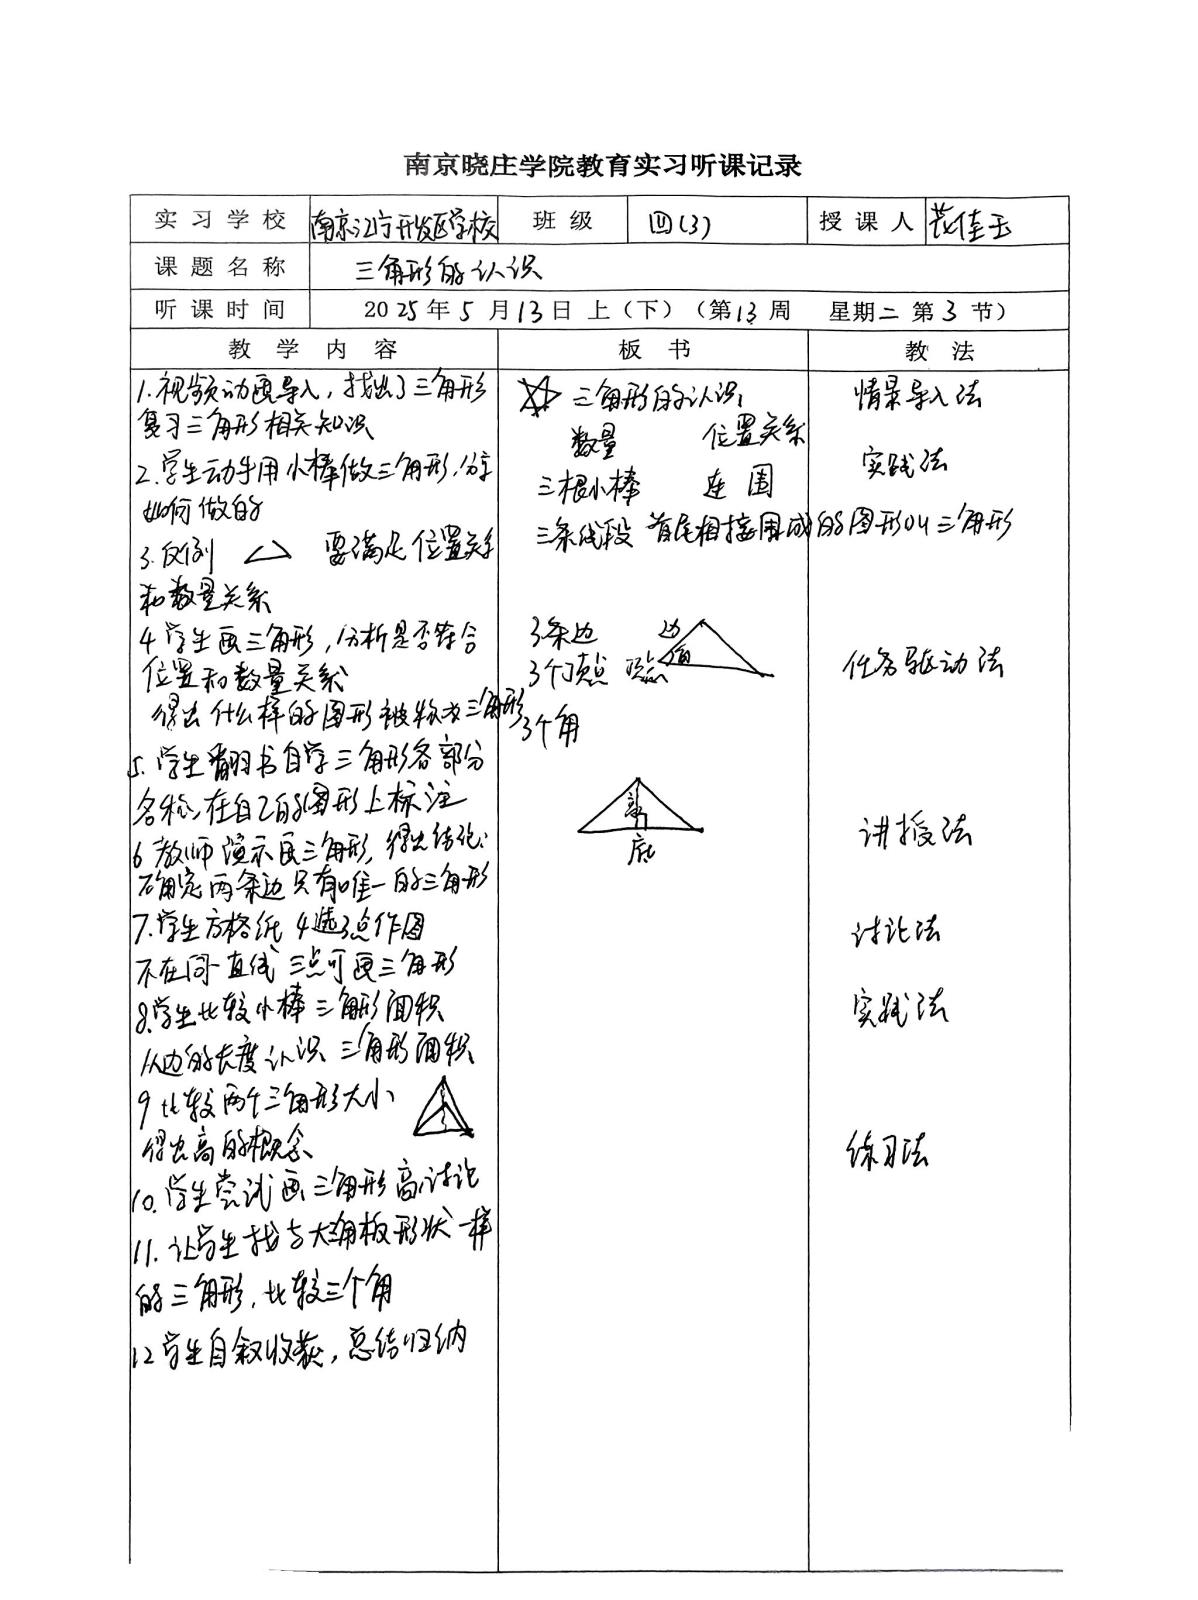 南京晓庄学院教育实习听课记录
实习学校 南京江宁开发区学校 班级 四(3) 授课人 佳玉
课题名称 三角形的认识
听课时间 2025年5月13日 上（下）（第13周 星期二 第3节）
教学内容 板书 教法
1.视频动画导入，找出了三角形
复习三角形相关知识
2.学生动手用小棒做三角形,分享
如何做的
3.反例 要满足位置关系
和数量关系
4 学生画三角形,分析是否符合
位置和数量关系
得出什么样的图形被称为三角形
5.学生翻书自学三角形各部分
名称,在自己的图形上标注
6 教师演示画三角形,得出结论:
确定两条边只有唯一的三角形
7.学生方格纸 4选3点作图
不在同一直线 三点可画三角形
8.学生比较小棒三角形面积
从边的长度认识 三角形面积
9 比较两个三角形大小
得出高的概念
10.学生尝试画三角形高,讨论
11.让学生找与大三角板形状一样
的三角形,比较三个角
12 学生自叙收获,总结归纳
三角形的认识
数量 位置关系
三根小棒 连 围
三条线段 首尾相接围成的图形叫三角形
3条边 边
角
3个顶点 顶点
3个角
高
底
情景导入法
实践法
任务驱动法
讲授法
讨论法
实践法
练习法